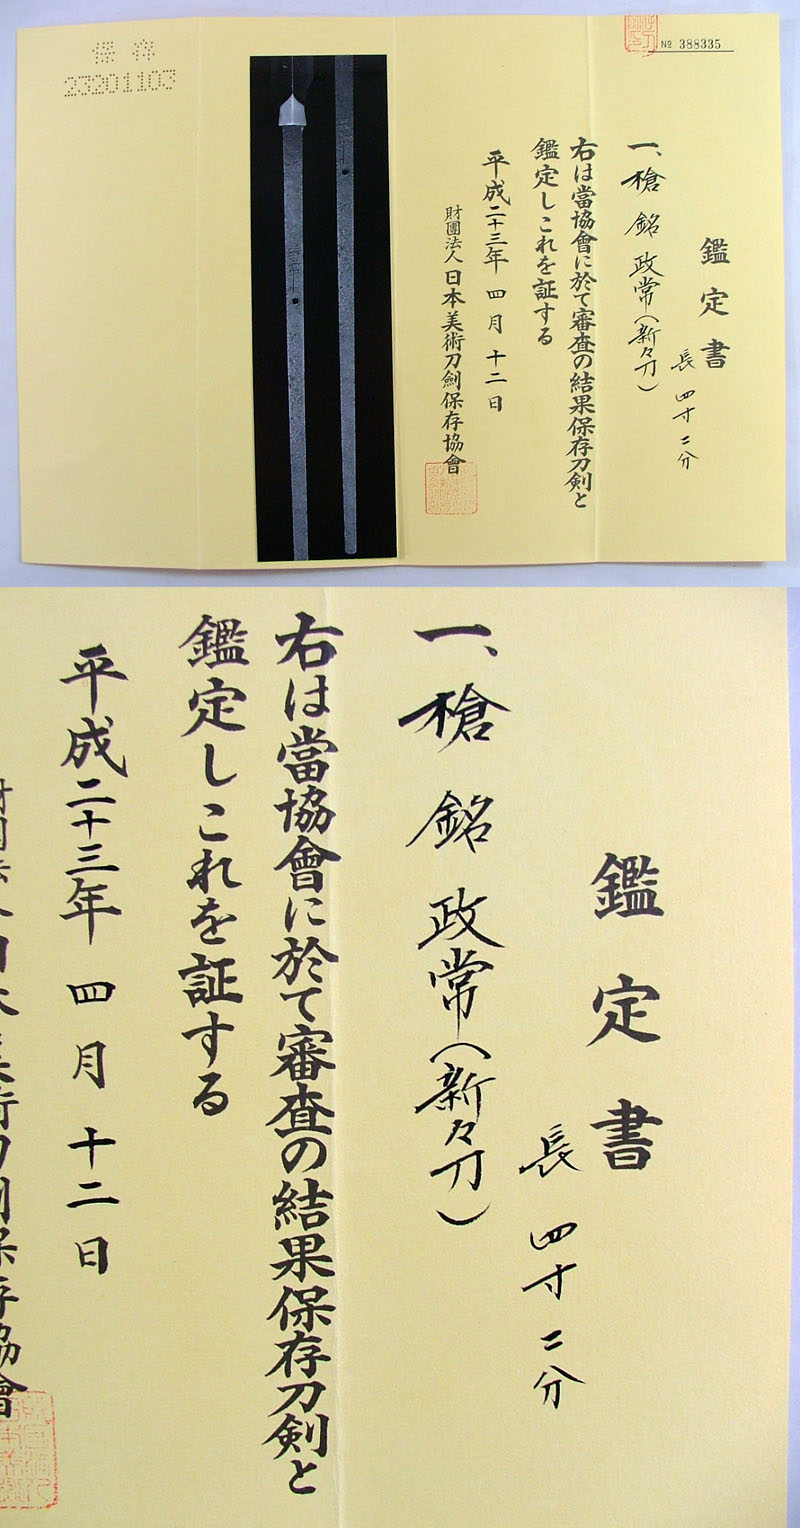 保存
23201103
№ 388335
鑑定書
長 四寸二分
一、槍 銘 政常(新々刀)
右は當協會に於て審査の結果保存刀剣と
鑑定しこれを証する
平成二十三年 四月 十二日
財團法人日本美術刀劍保存協會
鑑定書
長 四寸二分
一、槍 銘 政常(新々刀)
右は當協會に於て審査の結果保存刀剣と
鑑定しこれを証する
平成二十三年 四月 十二日
財團法人日本美術刀劍保存協會